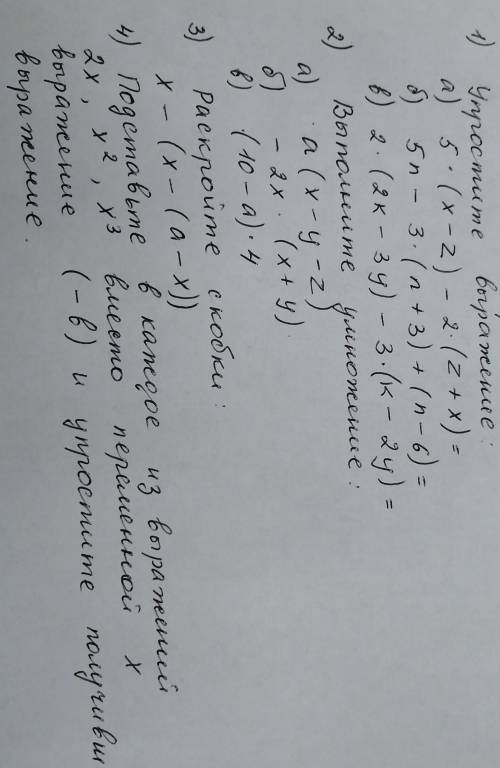 1) Упростите выражение:
а) 5·(x-z)-2·(z+x)=
б) 5n-3·(n+3)+(n-6)=
в) 2·(2к-3у)-3·(к-2у)=
2) Выполните умножение:
а) а(x-y-z)
б) -2x·(x+y)
в) (10-а)·4
3) Раскройте скобки:
x-(x-(a-x))
4) Подставьте в каждое из выражений
2x, x², x³ вместо переменной x
выражение (-в) и упростите получивш
выражение.